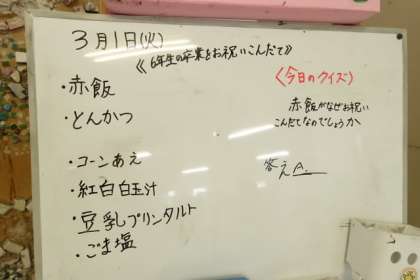 3月1日(火)
《6年生の卒業をお祝いこんだて》
・赤飯
・とんかつ
・コーンあえ
・紅白白玉汁
・豆乳プリンタルト
・ごま塩
〈今日のクイズ〉
赤飯がなぜお祝い
こんだてなのでしょうか
答え A.